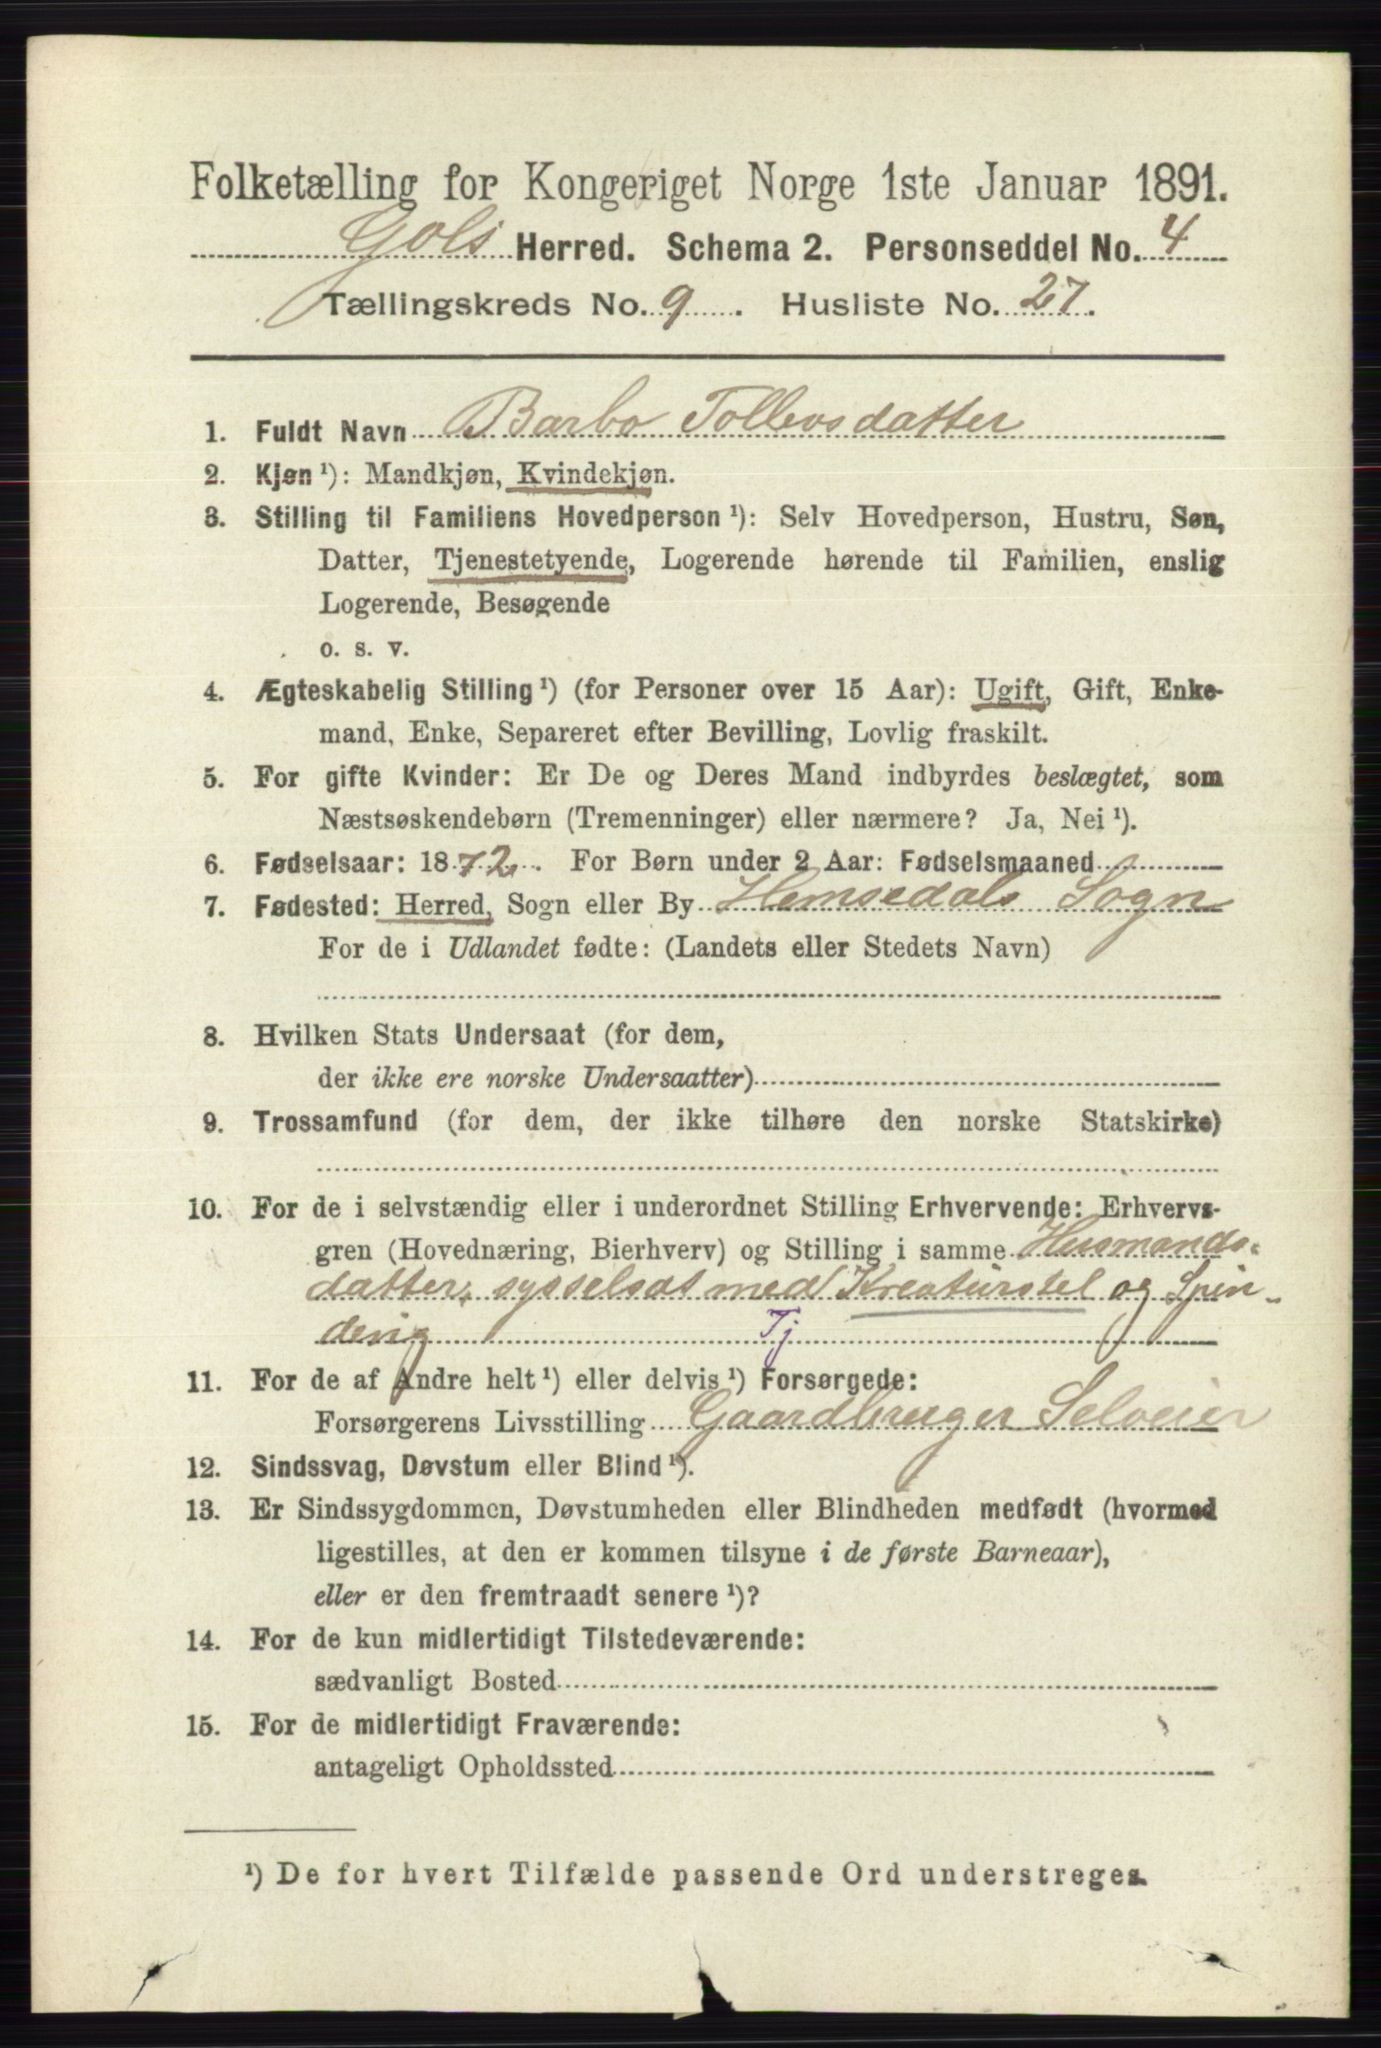 Folketælling for Kongeriget Norge 1ste Januar 1891.
Gols Herred. Schema 2. Personseddel No. 4
Tællingskreds No. 9. Husliste No. 27.
1. Fuldt Navn Barbo Tollevsdatter
2. Kjøn ¹): Mandkjøn, Kvindekjøn.
3. Stilling til Familiens Hovedperson ¹): Selv Hovedperson, Hustru, Søn,
Datter, Tjenestetyende, Logerende hørende til Familien, enslig
Logerende, Besøgende
o. s. v.
4. Ægteskabelig Stilling ¹) (for Personer over 15 Aar): Ugift, Gift, Enke-
mand, Enke, Separeret efter Bevilling, Lovlig fraskilt.
5. For gifte Kvinder: Er De og Deres Mand indbyrdes beslægtet, som
Næstsøskendebørn (Tremenninger) eller nærmere? Ja, Nei ¹).
6. Fødselsaar: 1872. For Børn under 2 Aar: Fødselsmaaned
7. Fødested: Herred, Sogn eller By Hemsedals Sogn
For de i Udlandet fødte: (Landets eller Stedets Navn)
8. Hvilken Stats Undersaat (for dem,
der ikke ere norske Undersaatter)
9. Trossamfund (for dem, der ikke tilhøre den norske Statskirke)
10. For de i selvstændig eller i underordnet Stilling Erhvervende: Erhvervs-
gren (Hovednæring, Bierhverv) og Stilling i samme Husmands-
datter, sysselsat med Kreaturstel og Spin-
ding Tj
11. For de af Andre helt ¹) eller delvis ¹) Forsørgede:
Forsørgerens Livsstilling Gaardbruger Selveier
12. Sindssvag, Døvstum eller Blind ¹).
13. Er Sindssygdommen, Døvstumheden eller Blindheden medfødt (hvormed
ligestilles, at den er kommen tilsyne i de første Barneaar),
eller er den fremtraadt senere ¹)?
14. For de kun midlertidigt Tilstedeværende:
sædvanligt Bosted
15. For de midlertidigt Fraværende:
antageligt Opholdssted
¹) De for hvert Tilfælde passende Ord understreges.